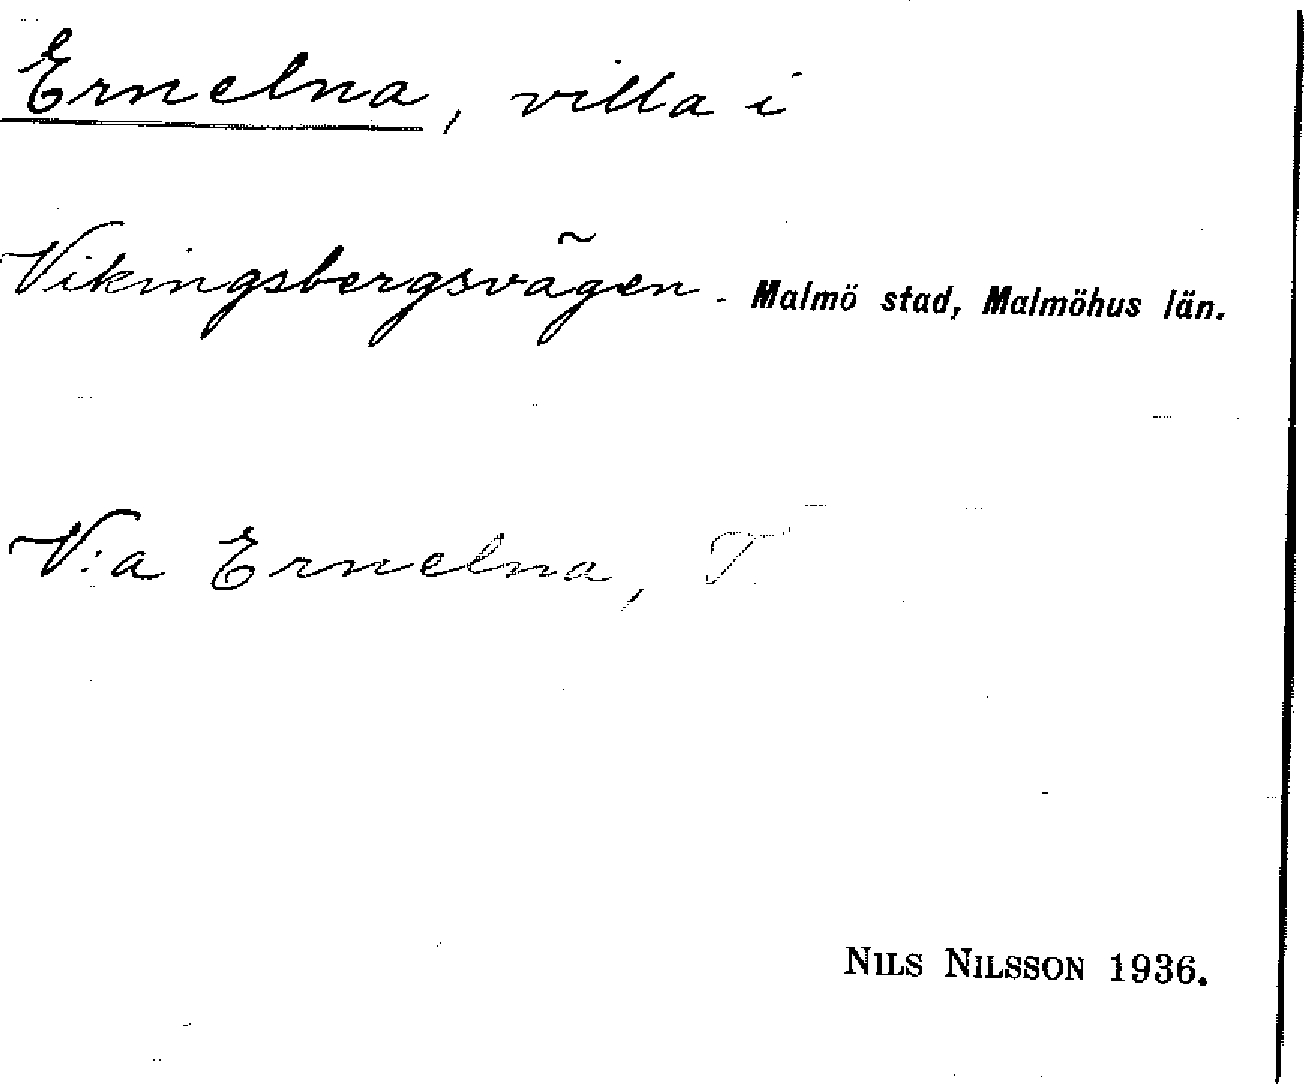 Ernelna, villa i
Vikingsbergsvägen. Malmö stad, Malmöhus län.
V:a Ernelna, T.
NILS NILSSON 1936.